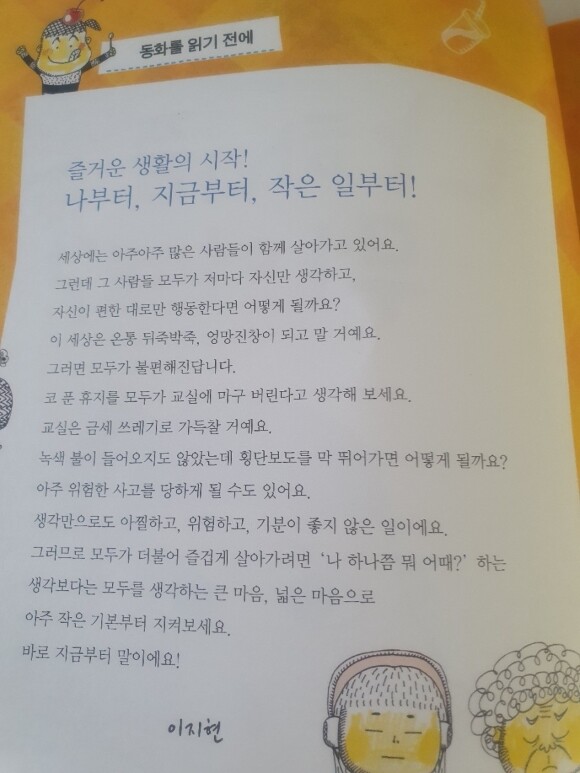 동화를 읽기 전에
즐거운 생활의 시작!
나부터, 지금부터, 작은 일부터!
세상에는 아주아주 많은 사람들이 함께 살아가고 있어요.
그런데 그 사람들 모두가 저마다 자신만 생각하고,
자신이 편한 대로만 행동한다면 어떻게 될까요?
이 세상은 온통 뒤죽박죽, 엉망진창이 되고 말 거예요.
그러면 모두가 불편해진답니다.
코 푼 휴지를 모두가 교실에 마구 버린다고 생각해 보세요.
교실은 금세 쓰레기로 가득찰 거예요.
녹색 불이 들어오지도 않았는데 횡단보도를 막 뛰어가면 어떻게 될까요?
아주 위험한 사고를 당하게 될 수도 있어요.
생각만으로도 아찔하고, 위험하고, 기분이 좋지 않은 일이에요.
그러므로 모두가 더불어 즐겁게 살아가려면 ‘나 하나쯤 뭐 어때?’ 하는
생각보다는 모두를 생각하는 큰 마음, 넓은 마음으로
아주 작은 기본부터 지켜보세요.
바로 지금부터 말이에요!
이지현